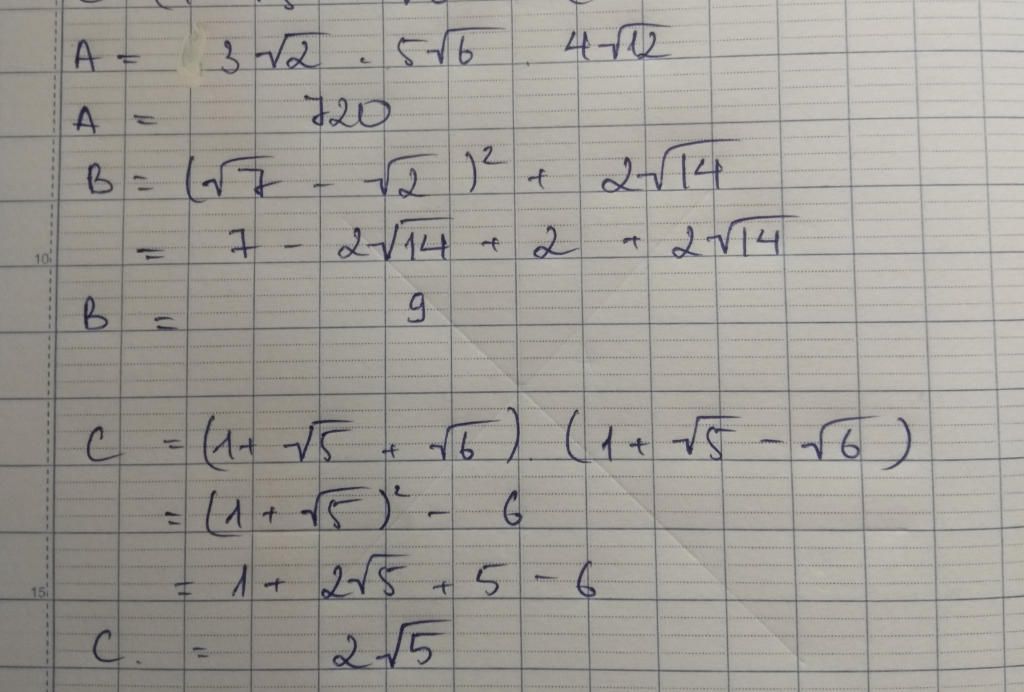 A = 3√2 . 5√6 . 4√12
A = 720
B = (√7 - √2)² + 2√14
10 = 7 - 2√14 + 2 + 2√14
B = 9
C = (1+ √5 + √6) . (1+ √5 - √6)
= (1 + √5)² - 6
15 = 1 + 2√5 + 5 - 6
C. = 2√5